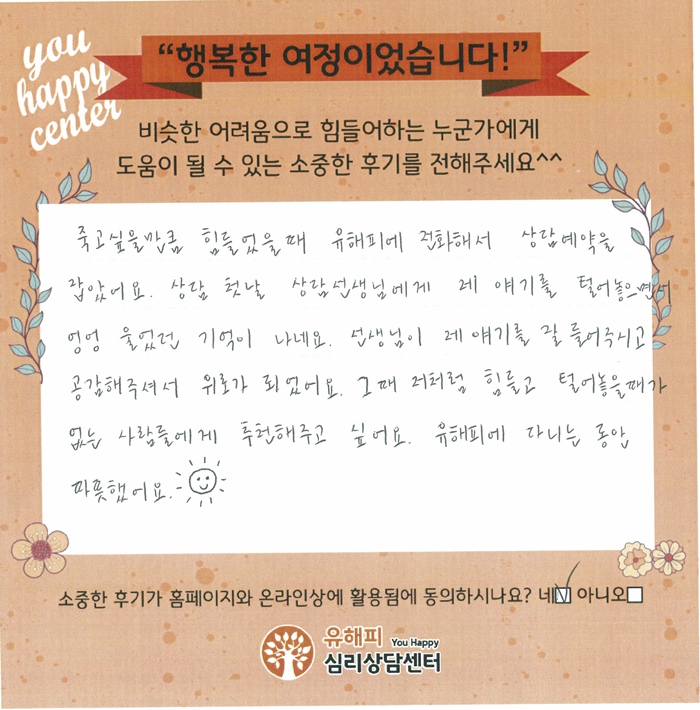 you
happy
center
“행복한 여정이었습니다!”
비슷한 어려움으로 힘들어하는 누군가에게
도움이 될 수 있는 소중한 후기를 전해주세요^^
죽고싶을만큼 힘들었을때 유해피에 전화해서 상담예약을
잡았어요. 상담 첫날 상담선생님에게 제 얘기를 털어놓으면서
엉엉 울었던 기억이 나네요. 선생님이 제 얘기를 잘 들어주시고
공감해주셔서 위로가 되었어요. 그때 저처럼 힘들고 털어놓을때가
없는 사람들에게 추천해주고 싶어요. 유해피에 다니는 동안
따뜻했어요.
소중한 후기가 홈페이지와 온라인상에 활용됨에 동의하시나요? 네☑ 아니오☐
유해피 You Happy
심리상담센터